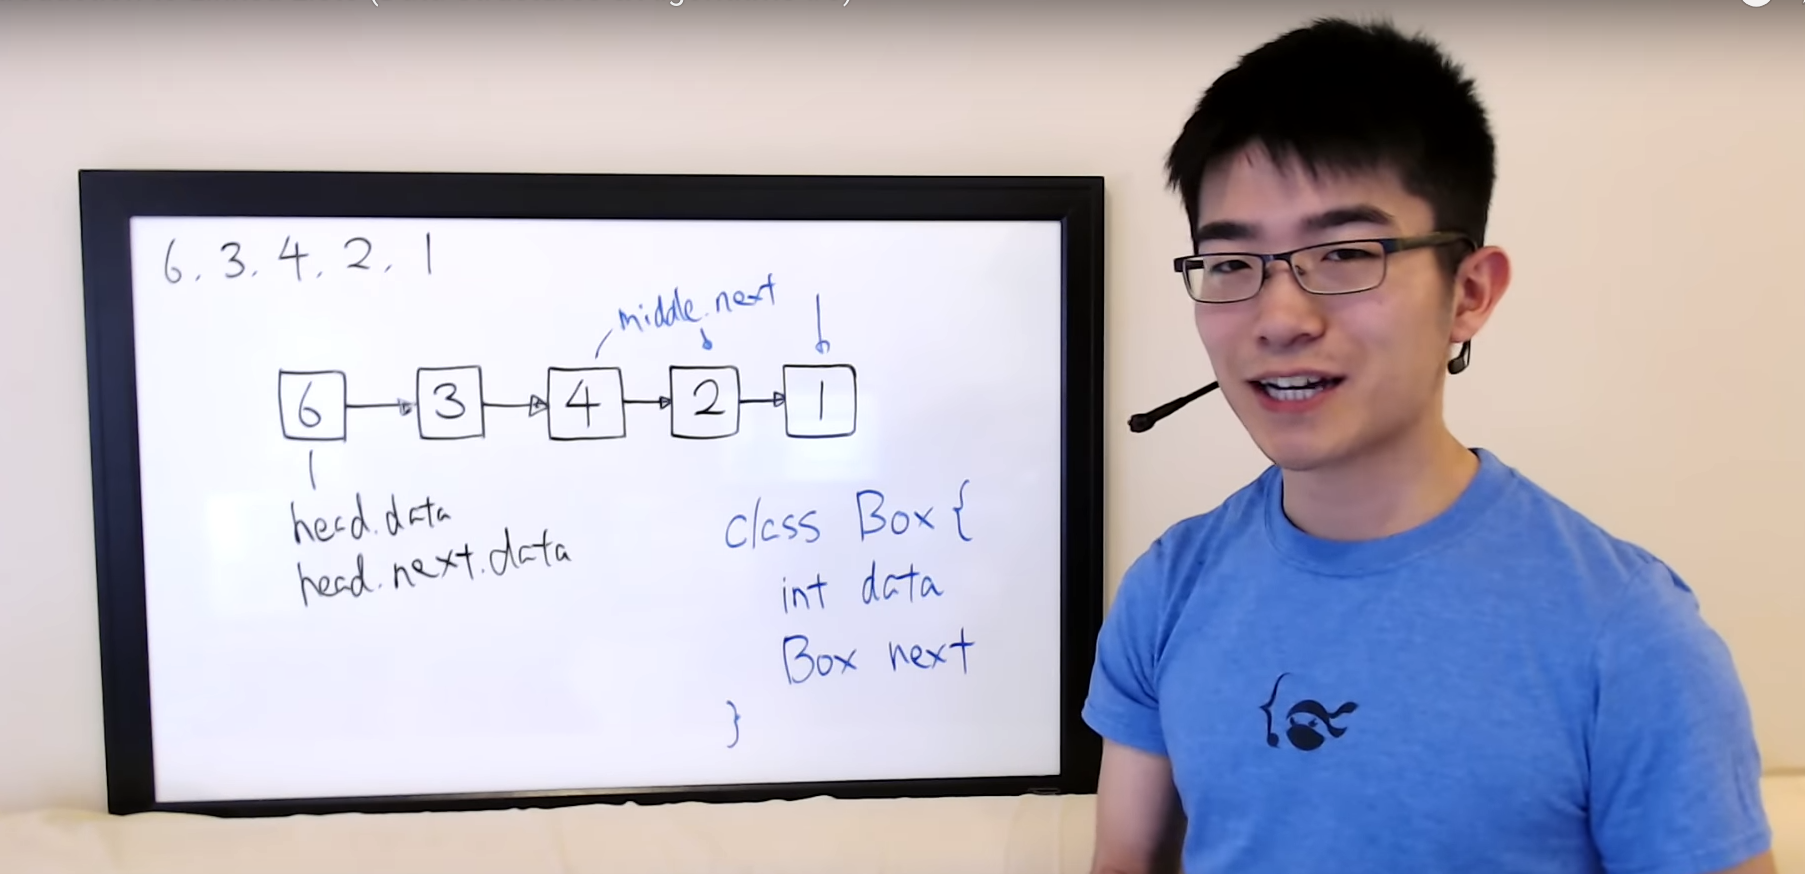 6. 3. 4. 2. 1
middle.next
6 3 4 2 1
head.data
head.next.data
class Box {
int data
Box next
}